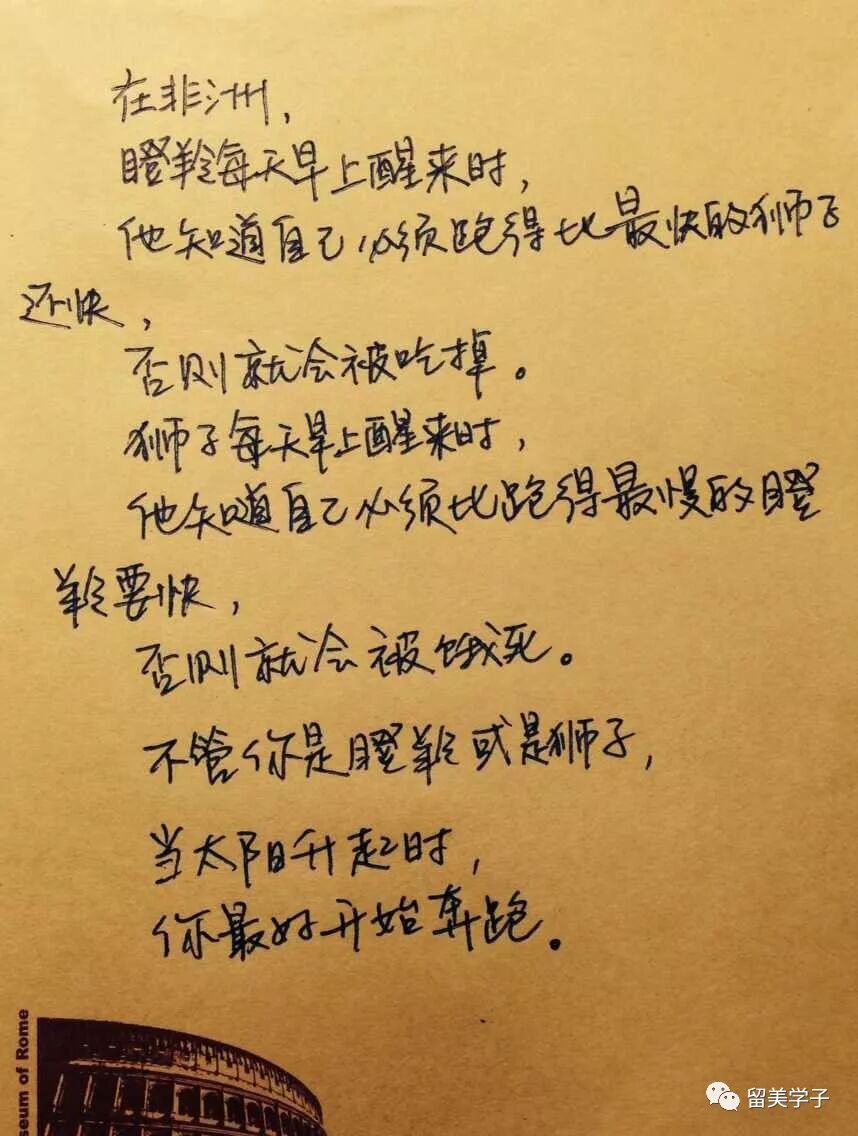 在非洲,
瞪羚每天早上醒来时,
他知道自己必须跑得比最快的狮子
还快,
否则就会被吃掉。
狮子每天早上醒来时,
他知道自己必须比跑得最慢的瞪
羚要快,
否则就会被饿死。
不管你是瞪羚或是狮子,
当太阳升起时,
你最好开始奔跑。
seum of Rome
留美学子